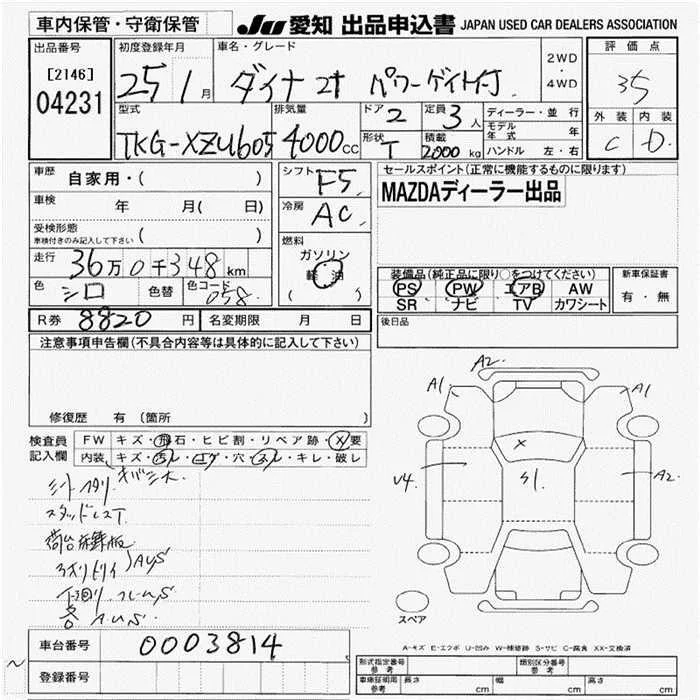 車内保管・守衛保管 JU 愛知 出品申込書 JAPAN USED CAR DEALERS ASSOCIATION
出品番号 初度登録年月 車名・グレード 2WD・4WD 評価点
[2146] 25年 1月 ダイナ 2t パワーゲート付 35
04231
型式 排気量 ドア 2 定員 3人 ディーラー・並行 外装 内装
TKG-XZU605 4000cc 形状 T 積載 2000kg モデル年式 年 C D
ハンドル 左・右
車歴 自家用・( ) シフト F5 セールスポイント(正常に機能するものに限ります)
車検 年 月( 日) 冷房 AC MAZDAディーラー出品
受検形態 車検付きのみ記入して下さい ( )
燃料 ガソリン 軽油 ( )
走行 36万0千348km
装備品(純正品に限り○をつけてください) 新車保証書
色 シロ 色替 色コード 058
PS PW エアB AW 有・無
SR ナビ TV カワシート
R券 8820円 名変期限 月 日 後日品
注意事項申告欄(不具合内容等は具体的に記入して下さい)
修復歴 有 (箇所 )
A2
A1 A1
検査員記入欄 FW キズ・飛石・ヒビ割・リペア跡・X要
内装 キズ・汚レ・コゲ・穴・スレ・キレ・破レ
X
V4 S1 A2
スタッドレスT
荷台
AUS
下回り フレームS
AUS
スペア
A-キズ E-エクボ U-凹み W-補修跡 S-サビ C-腐食 XX-交換済
車台番号 0003814
登録番号
形式指定番号 参考 類別区分番号 参考
車庫証明用 参考 長さ cm 幅 cm 高さ cm